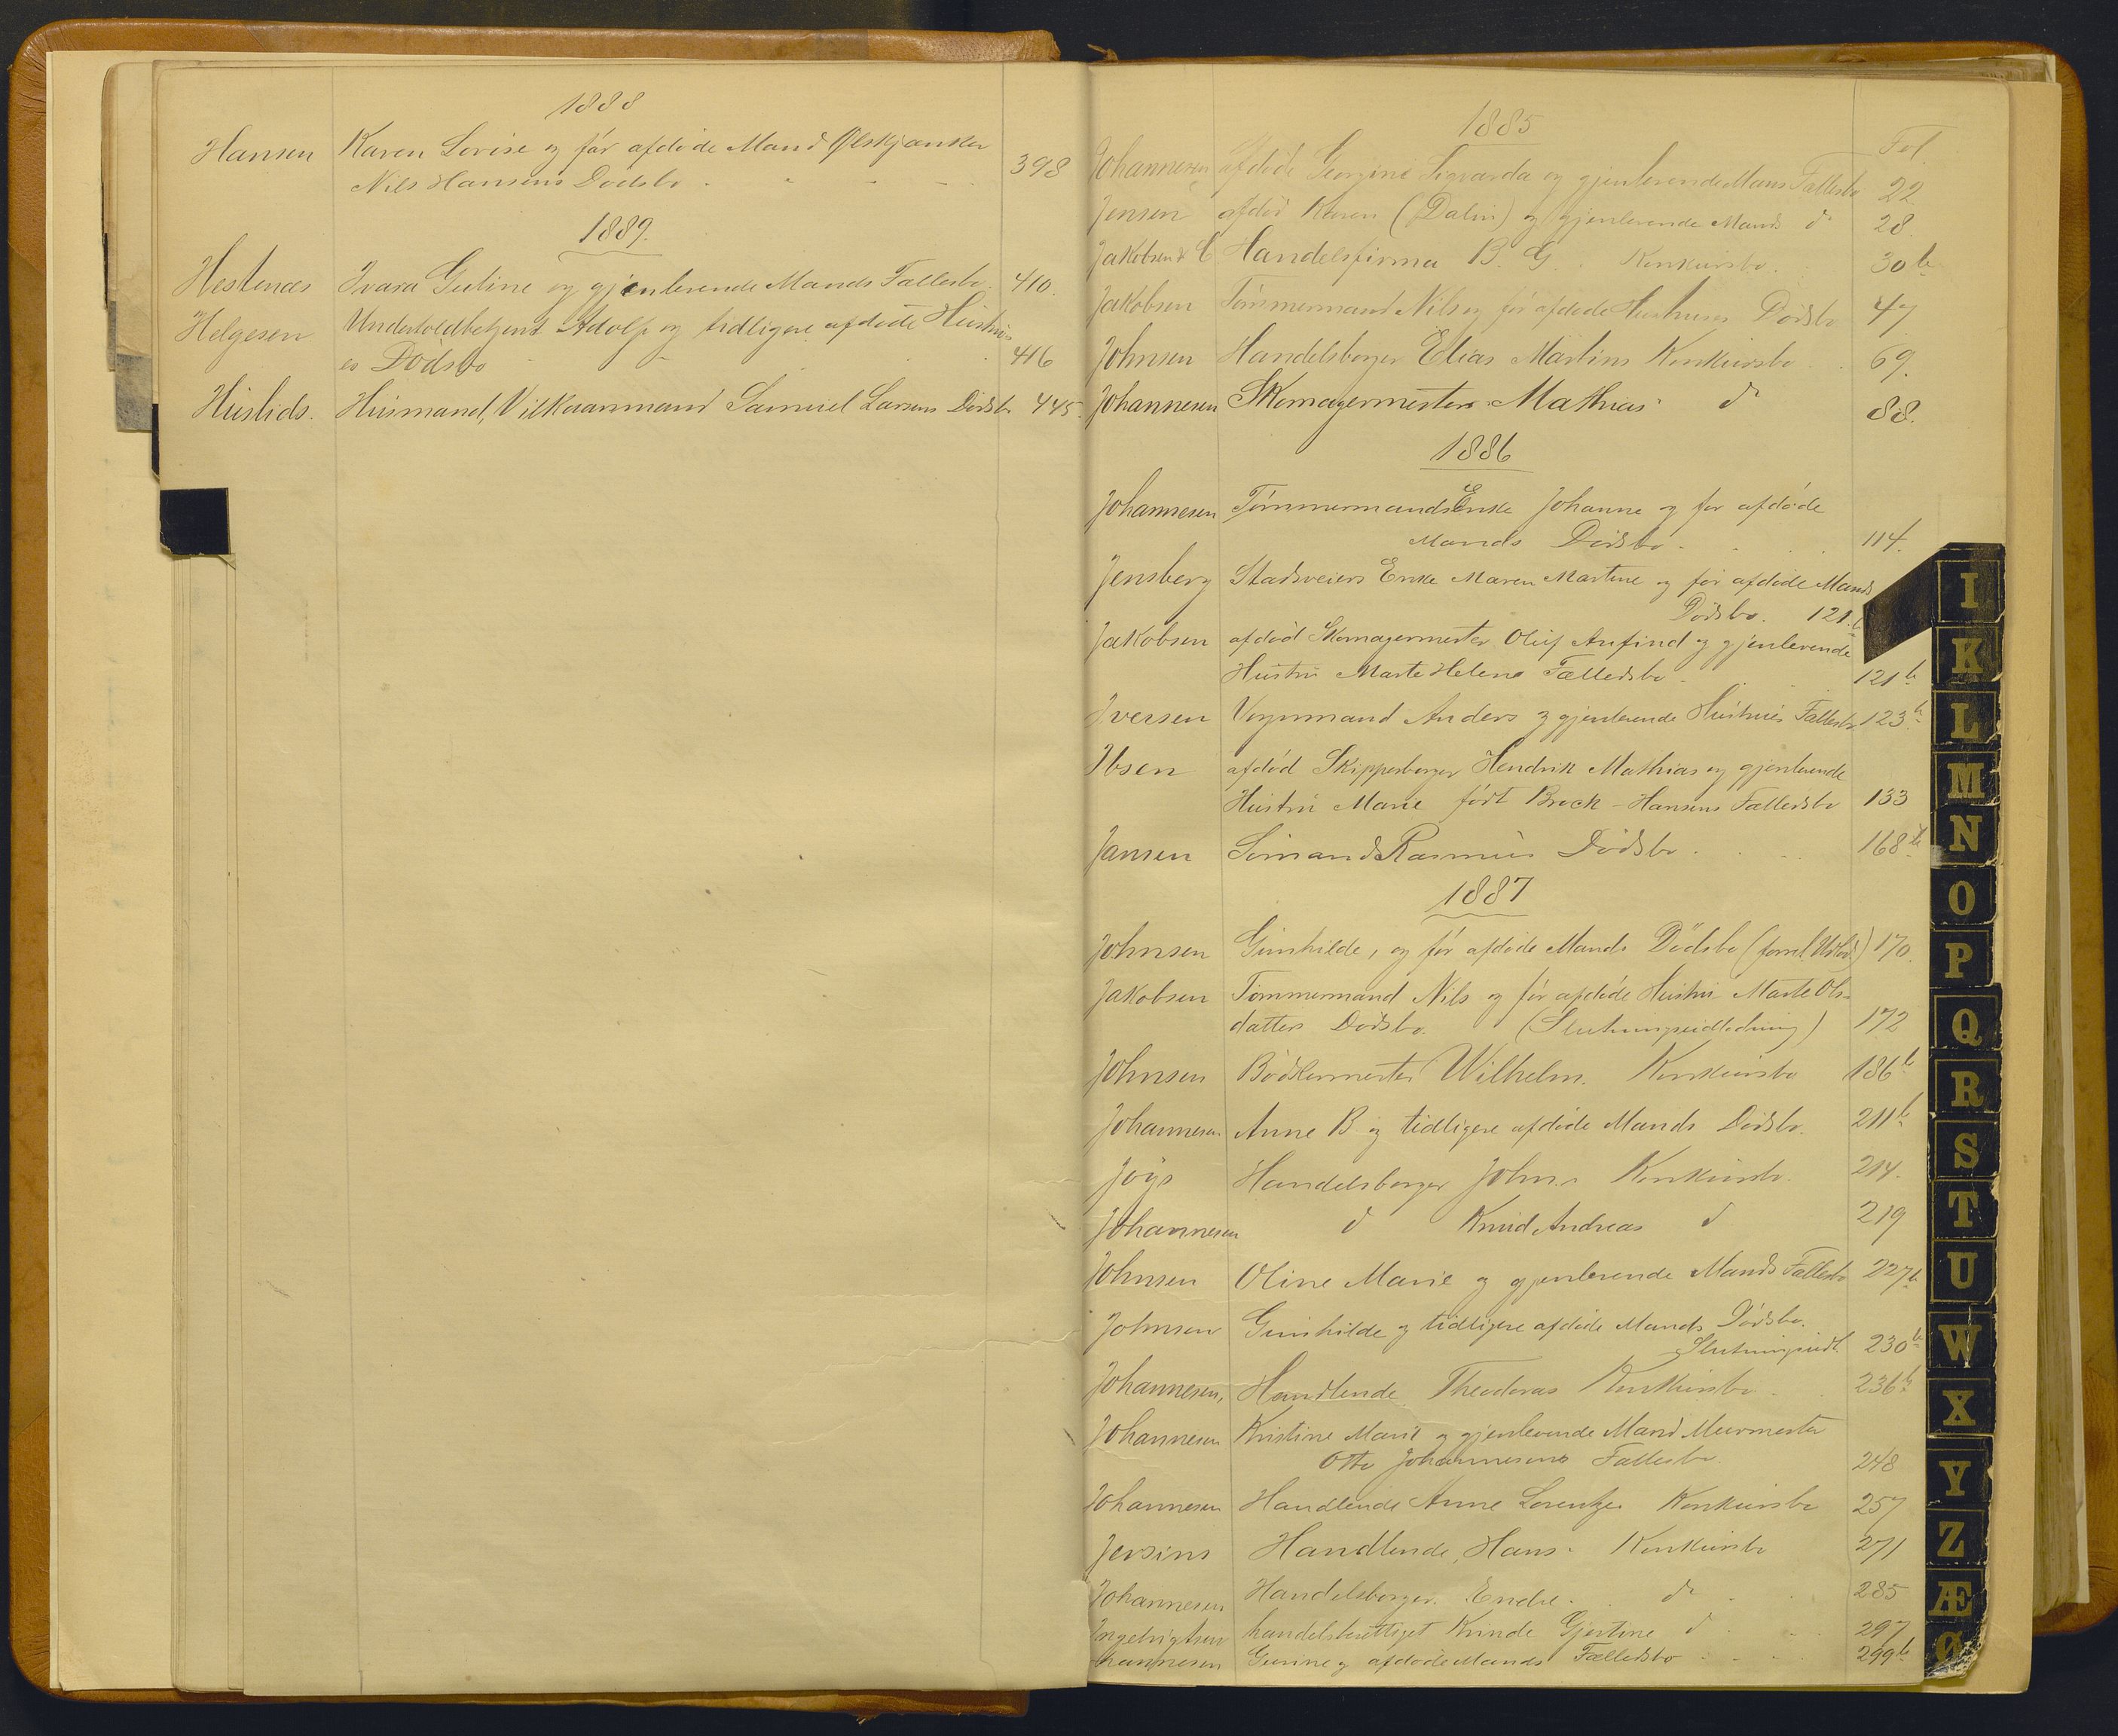 1888
Hansen Karen Lovise og før afdøde Mand Ølskjænker
Nils Hansens Dødsbo 398
1889.
Hestenæs Ivara Guline og gjenlevende Mands Fællesbo 410.
Helgesen Undertoldbetjent Adolf og tidligere afdøde Hustru
es Dødsbo 416
Huslids. Husmand, Vilkaarmand Samuel Larsens Dødsbo 445.
1885
Fol.
Johannesen afdøde Georgine Sigvarda og gjenlevende Mans Fællesbo 22
Jensen afdød Karen (Dalin) og gjenlevende Mands do 28.
Jakobsen & C Handelsfirma B. G. Konkursbo. 30 b
Jakobsen Tømmermand Nils og før afdøde Hustrues Dødsbo 47
Johnsen Handelsborger Elias Martins Konkursbo 69.
Johannesen Skomagermester Mathias do 88.
1886
Johannesen Tømmermands Enke Johanne og før afdøde
Mands Dødsbo 114.
Jensberg Stadsveiers Enke Maren Martine og før afdøde Mands
Dødsbo. 121. b
Jakobsen afdød Skomagermester Oluf Anfind og gjenlevende
Hustru Marte Helene Fælledsbo 121 b
Iversen Vognmand Anders og gjenlevende Hustrues Fællesbo 123 b
Ibsen afdød Skipperborger Hendrik Mathias og gjenlevende
Hustru Marie født Brock-Hansens Fælledsbo 133
Jansen Sømand Rasmus Dødsbo 168 b
1887
Johnsen Gunhilde, og før afdøde Mands Dødsbo 170.
Jakobsen Tømmermand Nils og før afdøde Hustru Marte Ols-
datters Dødsbo. (Slutningsudlodning) 172
Johnsen Bødkermester Wilhelm. Konkursbo 186 b
Johannesen Anne B. og tidligere afdøde Mands Dødsbo. 211 b
Joys Handelsborger John. Konkursbo. 214.
Johannesen do Knud Andreas do 219
Johnsen Oline Marie og gjenlevende Mands Fællesbo 227 b
Johnsen Gunhilde og tidligere afdøde Mands Dødsbo.
Slutningsudl. 230 b
Johannesen, Handlende Theodoras Konkursbo 236 b
Johannesen Kristine Marie og gjenlevende Mand Muurmester
Otto Johannesens Fællesbo 248
Johannesen Handlende Anne Lorentze Konkursbo 257
Jersins Handlende, Hans. Konkursbo 271
Johannesen Handelsborger. Endre. do 285
Ingebrigtsen handelsberettiget Kvinde Gjertine do 297
Johannesen Gurine og afdøde Mands Fælledsbo 299 b
I
K
L
M
N
O
P
Q
R
S
T
U
W
X
Y
Z
Æ
Ø